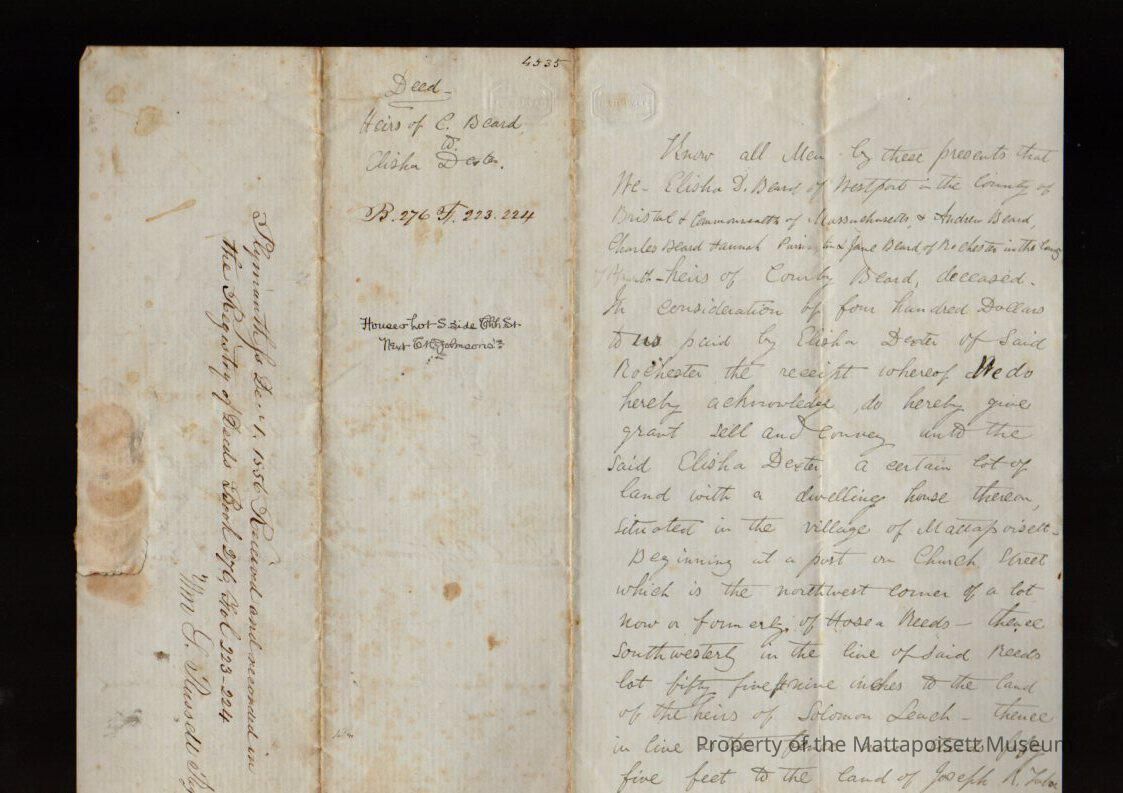 4535
Deed-
Heirs of C. Beard
to
Elisha Dexter.
B. 276 F. 223. 224
House & lot S. side Chh St.
Next
Plymouth ss Dec 1. 1856 Received and recorded in
the Registry of Deeds Book 276, Fol 223-224
Wm G. Russell
Know all Men by these presents that
We- Elisha D. Beard of Westport in the County of
Bristol & Commonwealth of Massachusetts & Andrew Beard,
Charles Beard Hannah & Jane Beard, of Rochester in the
heirs of Beard, deceased.
In consideration of four hundred Dollars
to us paid by Elisha Dexter of Said
Rochester the receipt whereof We do
hereby acknowledge, do hereby give
grant sell and convey unto the
said Elisha Dexter a certain lot of
land with a dwelling house thereon,
situated in the village of Mattapoisett-
Beginning at a post on Church Street
which is the northwest corner of a lot
now or formerly of Hosea Reeds- thence
Southwesterly in the line of said Reeds
lot fifty five ft nine inches to the land
of the heirs of Solomon Leach- thence
in line
five feet to the land of Joseph R.
Property of the Mattapoisett Museum